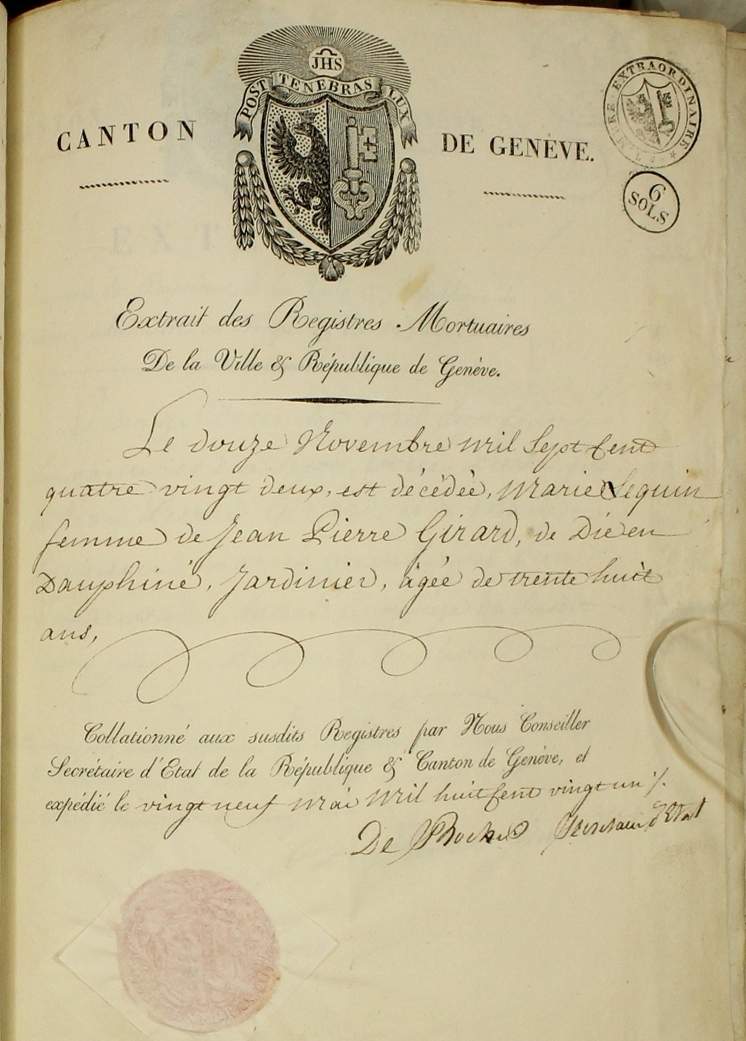 JHS
POST TENEBRAS LUX
CANTON DE GENÈVE.
TIMBRE EXTRAORDINAIRE
6 SOLS
Extrait des Registres Mortuaires
De la Ville & République de Genève.
Le douze Novembre mil Sept Cent
quatre vingt deux, est décédée, Marie Sequin
femme de Jean Pierre Girard, de Die en
Dauphiné, Jardinier, âgée de trente huit
ans,
Collationné aux susdits Registres par Nous Conseiller
Secrétaire d'Etat de la République & Canton de Genève, et
expédié le vingt neuf Mai Mil huit Cent vingt un ./.
De Secretaire d'Etat